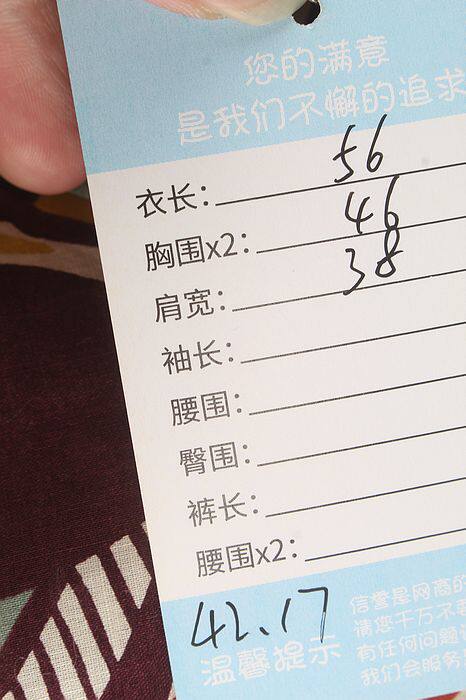 您的满意
是我们不懈的追求
衣长： 56
胸围x2： 46
肩宽： 38
袖长：
腰围：
臀围：
裤长：
腰围x2：
42.17
温馨提示
信誉是网商的
请您千万不
有任何问题
我们会服务